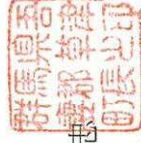 群馬県吾
妻郡草津
町長之印